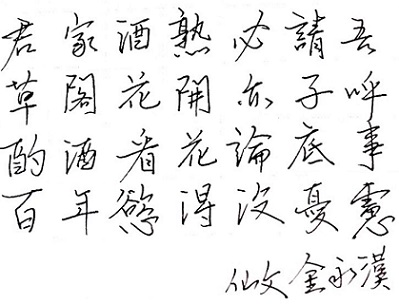 君家酒熟必請吾
草閣花開亦子呼
酌酒看花論底事
百年慾得沒憂憲
仙文 金永漢